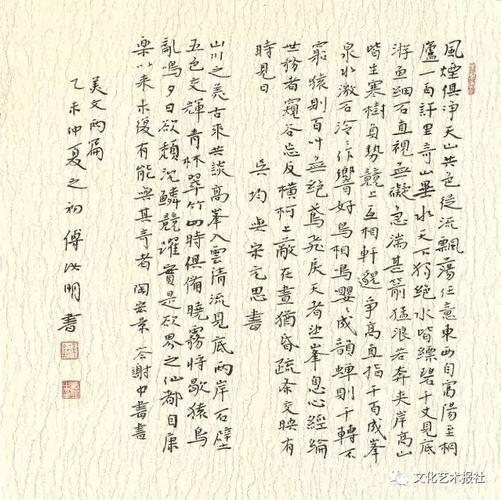 風煙俱净天山共色從流飄蕩任意東西自富陽至桐
廬一百許里奇山異水天下独絶水皆縹碧千丈見底
游魚細石直視無礙急湍甚箭猛浪若奔夹岸高山
皆生寒樹負勢競上互相軒邈争高直指千百成峯
泉水激石泠泠作響好鳥相鳴嚶嚶成韻蟬則千轉不
窮猿則百叫無絶鳶飛戾天者望峯息心經綸
世務者窺谷忘反横柯上蔽在晝猶昏疏条交映有
時見日 吴均與宋元思書
山川之美古來共談高峯入雲清流見底兩岸石壁
五色交輝青林翠竹四時俱備曉霧將歇猿鳥
亂鳴夕日欲頹沉鱗競躍實是欲界之仙都自康
樂以来未復有能與其奇者 陶宏景 答謝中書書
美文两篇
乙未仲夏之初傅汝明書
文化艺术报社